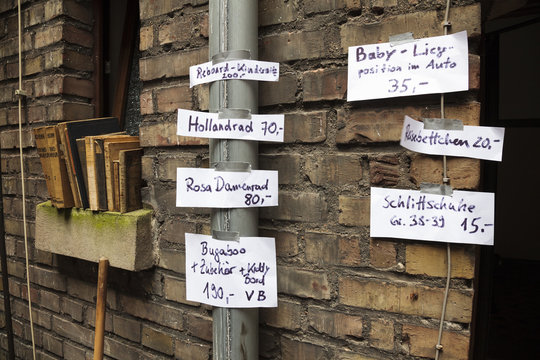 Reboard-Kindersitz
200,-
Hollandrad 70,-
Rosa Damenrad
80,-
Bugaboo
+ Zubehör + Kiddy
Bord
190,- VB
Baby - Liege-
position im Auto
35,-
Reisebettchen 20,-
Schlittschuhe
Gr. 38-39 15,-